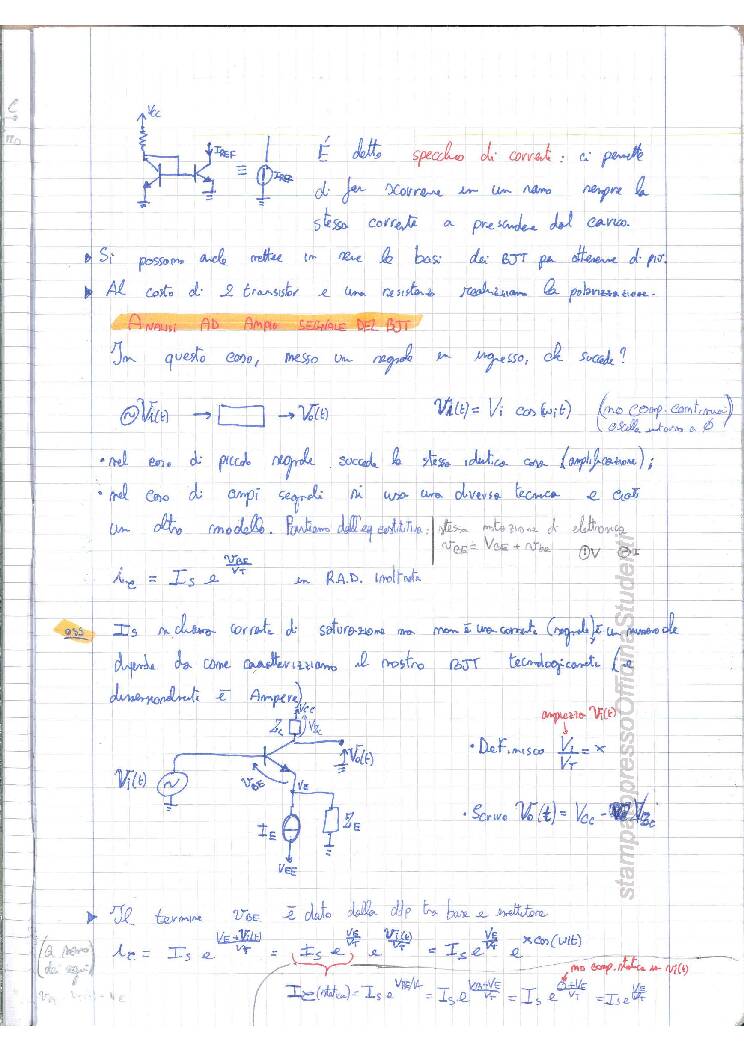 Vcc
IREF
≡
IREF
É detto specchio di corrente: ci permette
di far scorrere in un ramo sempre la
stessa corrente a prescindere dal carico.
▸ Si possono anche mettere in serie le basi dei BJT per ottenerne di più.
▸ Al costo di 2 transistor e una resistenza realizziamo la polarizzazione.
ANALISI AD AMPIO SEGNALE DEL BJT
In questo caso, messo un segnale in ingresso, che succede?
Vi(t) → → Vo(t) Vi(t) = Vi cos(wit) (no comp. continua) (oscilla intorno a Ø)
• nel caso di piccolo segnale succede la stessa identica cosa (amplificazione);
• nel caso di ampi segnali si usa una diversa tecnica e
un altro modello. Partiamo dall'eq costitutiva: stessa notazione di elettronica
vBE = VBE + vbe
ic = Is e^(vBE/VT) in R.A.D. inoltrata
oss Is si chiama corrente di saturazione ma non è una corrente (segnale), è un numero che
dipende da come caratterizziamo il nostro BJT tecnologicamente (e
dimensionalmente è Ampere)
Vcc
Zc
Vzc
Vo(t)
Vi(t)
vBE
VE
IE
ZE
VEE
ampiezza Vi(t)
• Definisco Vi/VT = x
• Scrivo Vo(t) = Vcc - Vzc
▸ Il termine vBE è dato dalla ddp tra base e emettitore
ic = Is e^((VE+Vi(t))/VT) = Is e^(VE/VT) e^(Vi(t)/VT) = Is e^(VE/VT) e^(x cos(wit))
(a meno dei segni)
no comp. statica in vi(t)
(statica) = Is e^(VBE/VT) = Is e^((VB+VE)/VT) = Is e^((Ø+VE)/VT) = Is e^(VE/VT)
stampato presso OfficinaStudenti